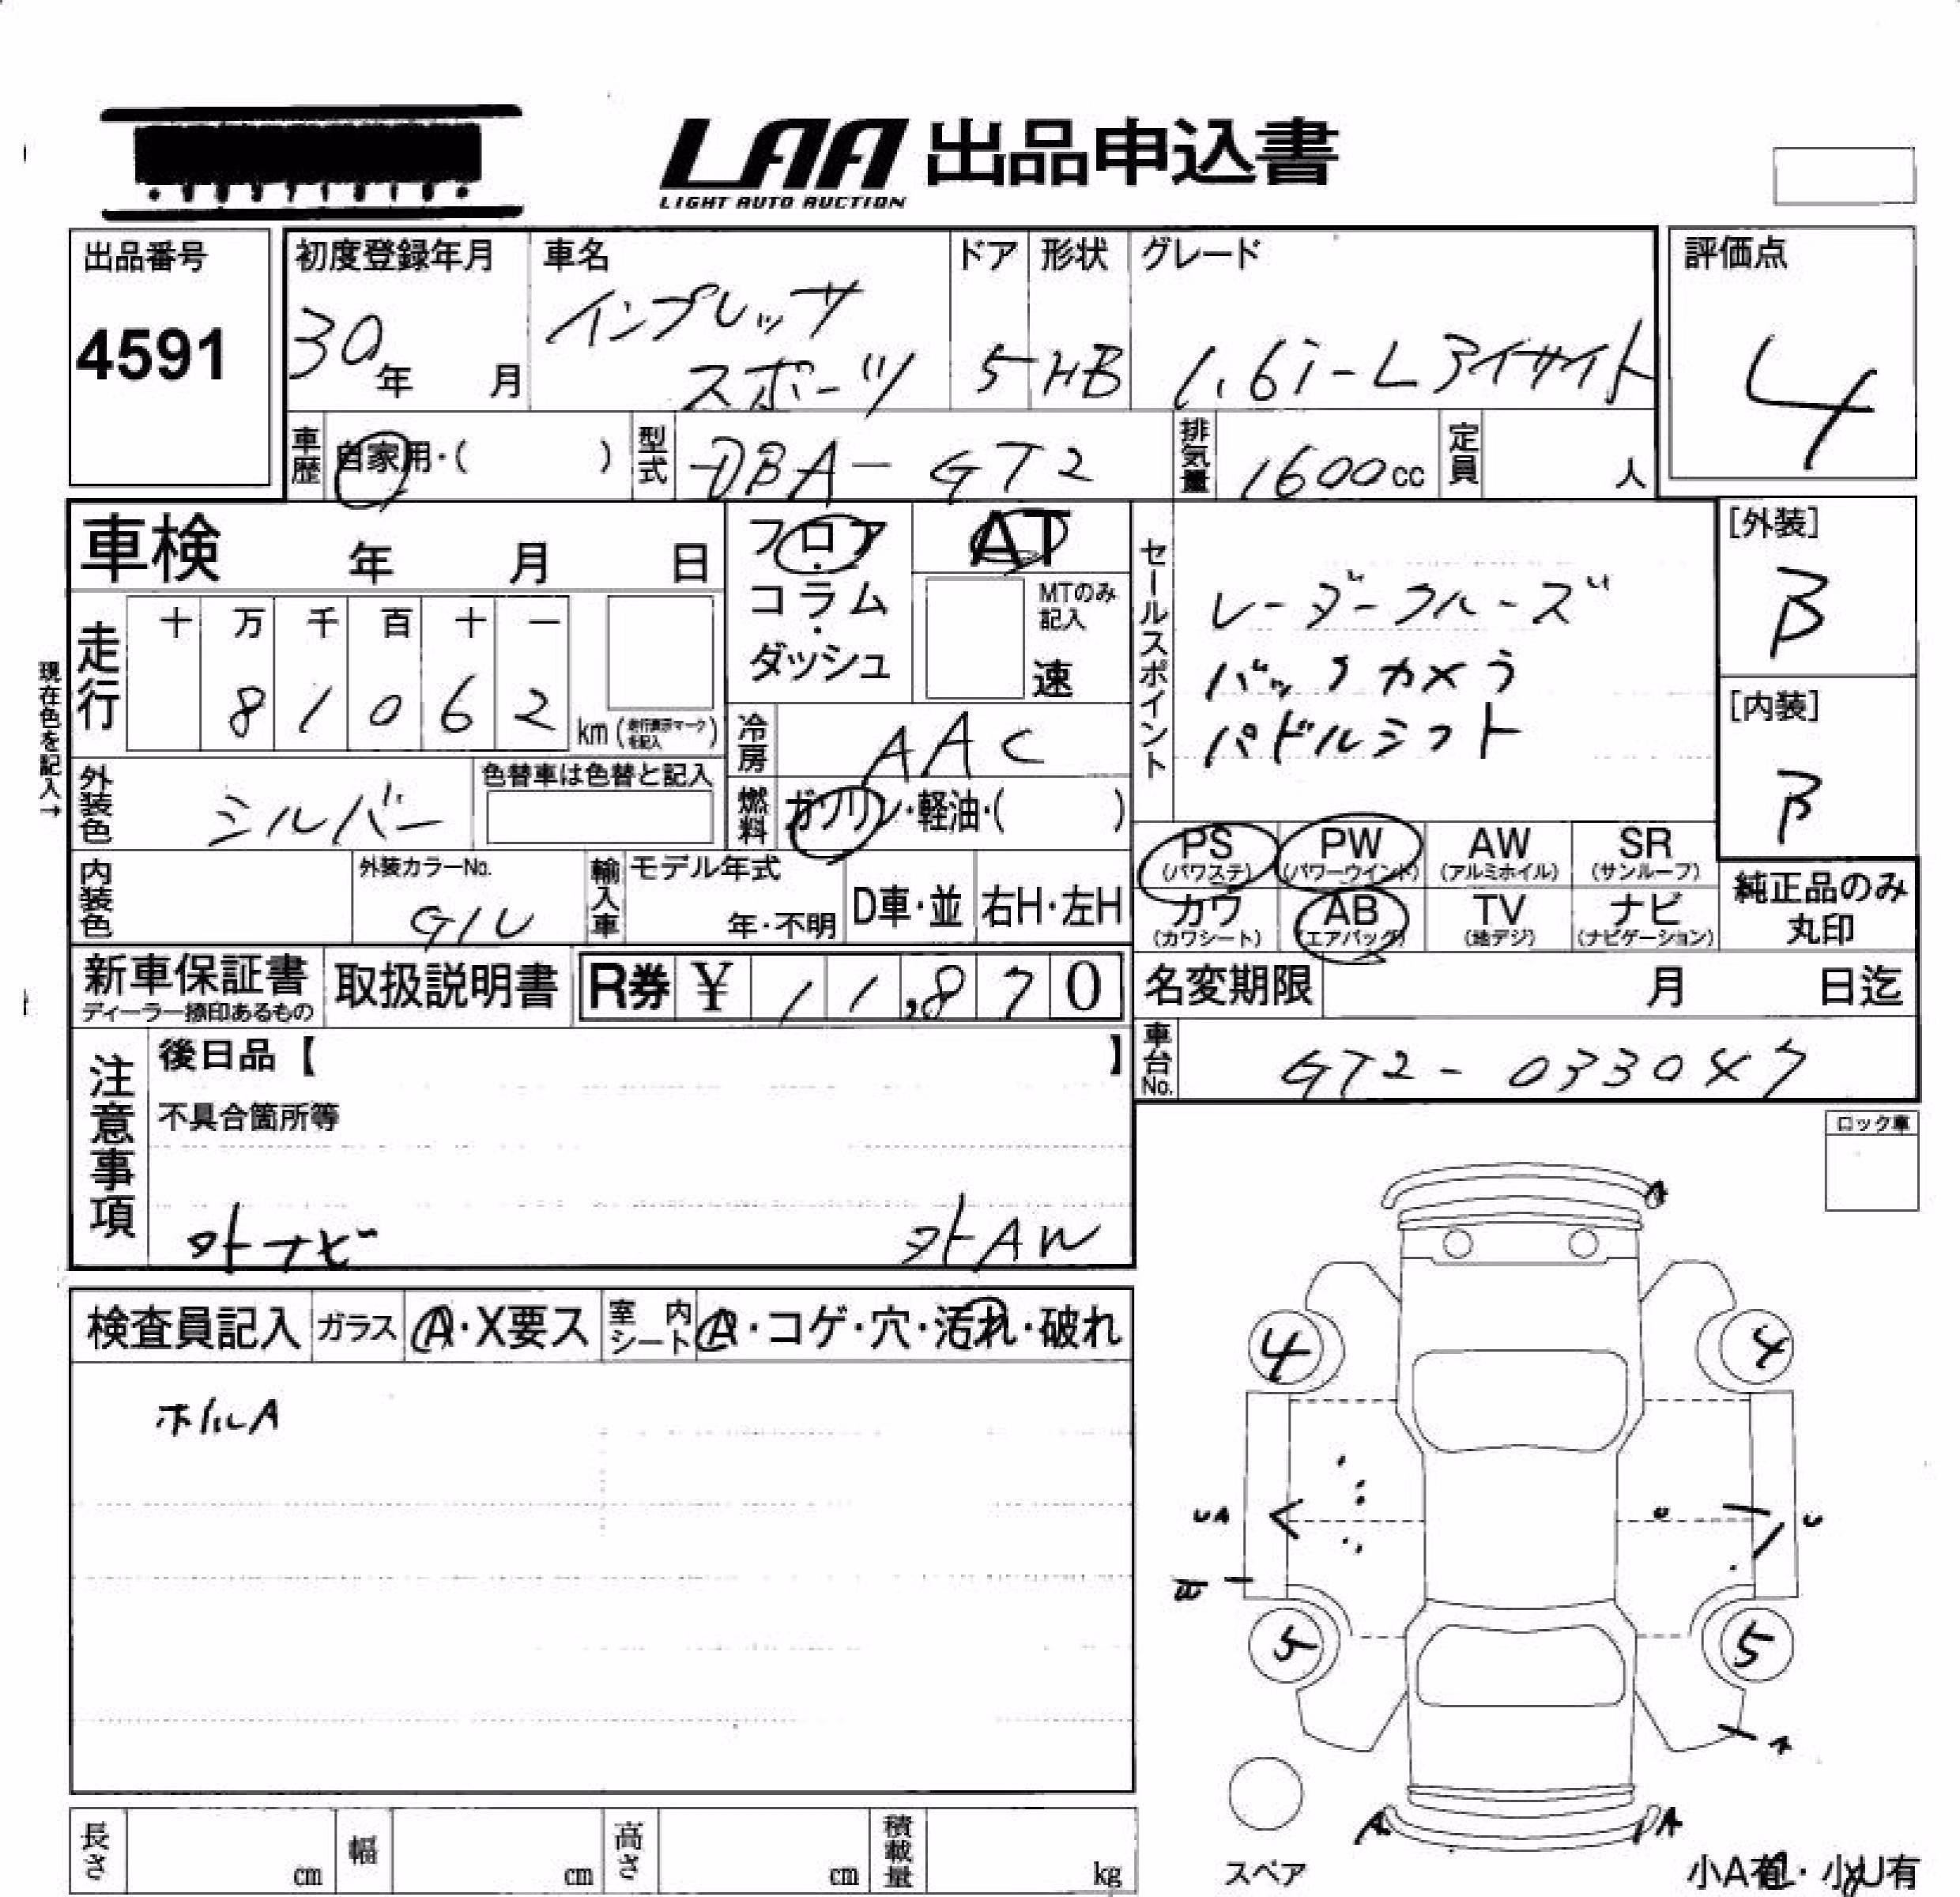 LAA 出品申込書
LIGHT AUTO AUCTION
出品番号
4591
初度登録年月
30年 月
車名
インプレッサ
スポーツ
ドア
5
形状
HB
グレード
1.6i-Lアイサイト
評価点
4
車歴
自家用・( )
型式
DBA-GT2
排気量
1600cc
定員
人
車検 年 月 日
フロア・コラム・ダッシュ
AT
MTのみ記入
速
セールスポイント
レーダークルーズ
バックカメラ
パドルシフト
[外装]
B
[内装]
B
現在色を記入→
走行
十 万 千 百 十 一
8 1 0 6 2 km (走行表示マークを記入)
冷房
AAC
燃料
ガソリン・軽油・( )
外装色
シルバー
色替車は色替と記入
PS (パワステ)
PW (パワーウインド)
AW (アルミホイル)
SR (サンルーフ)
カワ (カワシート)
AB (エアバッグ)
TV (地デジ)
ナビ (ナビゲーション)
純正品のみ
丸印
内装色
外装カラーNo.
G1U
輸入車
モデル年式
年・不明
D車・並
右H・左H
新車保証書
ディーラー捺印あるもの
取扱説明書
R券 ¥ 11,870
名変期限 月 日迄
車台No.
GT2-033047
注意事項
後日品【 】
不具合箇所等
外ナビ
外AW
ロック車
検査員記入
ガラス
A・X要ス
室内シート
A・コゲ・穴・汚れ・破れ
ホイルA
A
4
4
UA
U
U
W
5
5
A
A
A
スペア
小A有・小U有
長さ cm
幅 cm
高さ cm
積載量 kg